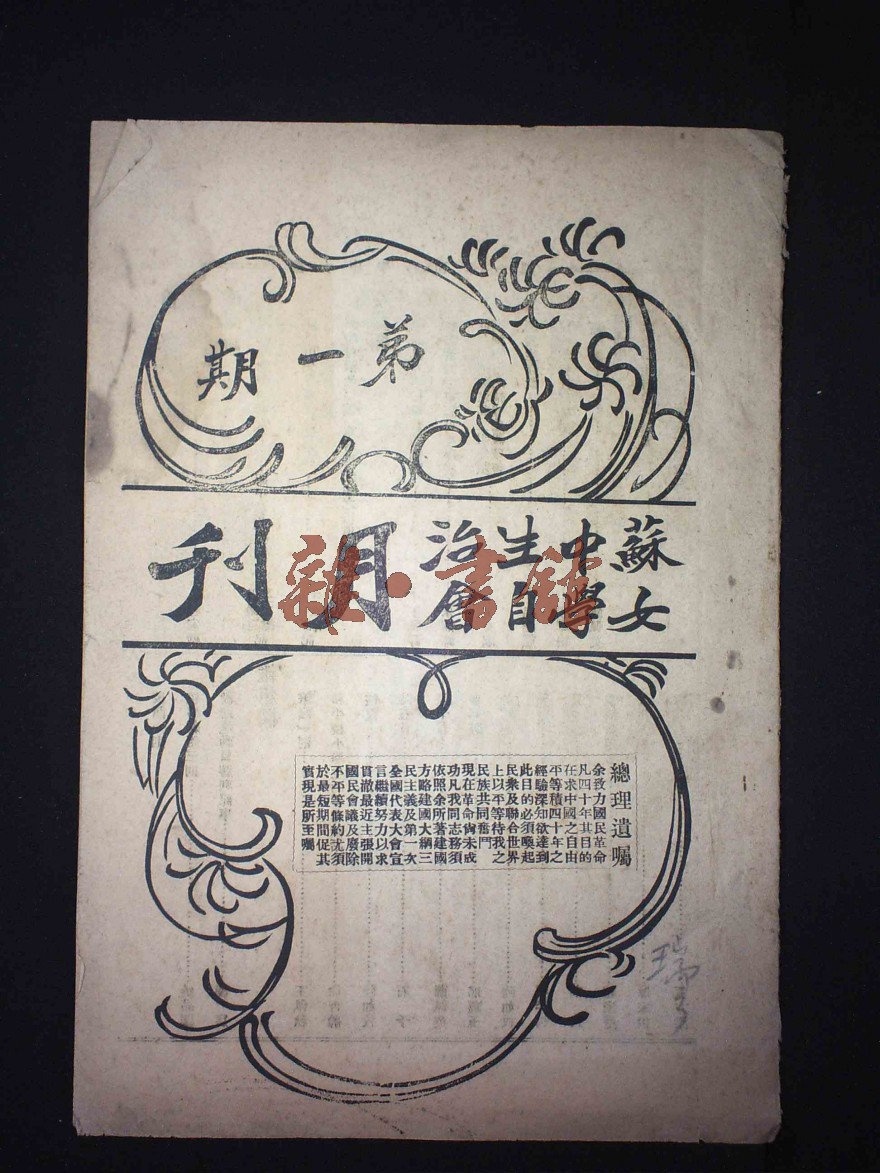 弟一期
蘇女中學生自治會月刊
雜·書館
總理遺囑
余致力國民革命
凡四十年其目的
在求中國之自由
平等積四十年之
經驗深知欲達到
此目的必須喚起
民衆及聯合世界
上以平等待我之
民族共同奮鬥
現在革命尙未成
功凡我同志務須
依照余所著建國
方略建國大綱三
民主義及第一次
全國代表大會宣
言繼續努力以求
貫澈最近主張開
國民會議及廢除
不平等條約尤須
於最短期間促其
實現是所至囑